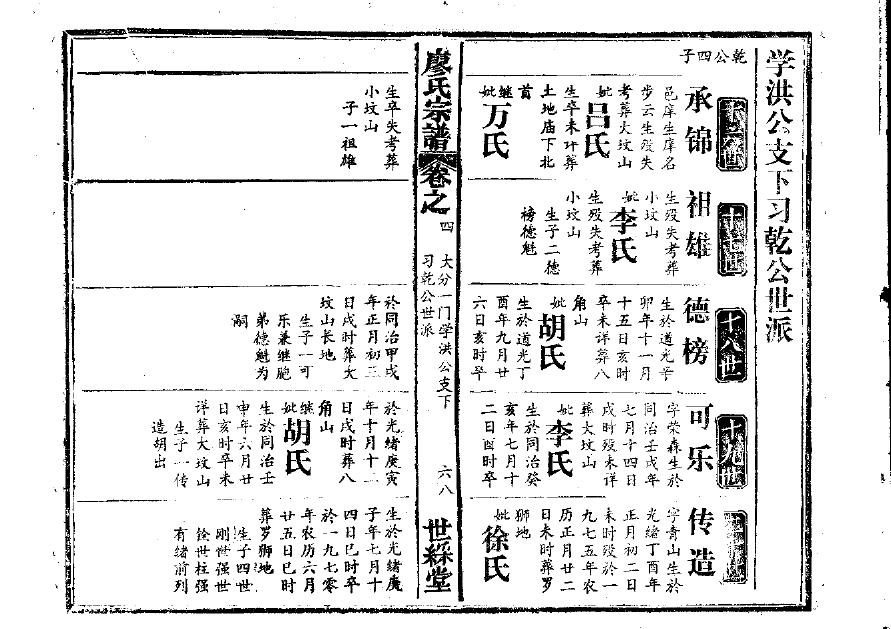 学洪公支下习乾公世派
十六世
乾公四子
承锦
邑庠生庠名
步云生殁失
考葬大坟山
妣吕氏
生卒未详葬
土地庙下北
首
继妣万氏
生卒失考葬
小坟山
子一祖雄
十七世
祖雄
生殁失考葬
小坟山
妣李氏
生殁失考葬
小坟山
生子二德
榜德魁
十八世
德榜
生於道光辛
卯年十一月
十五日亥时
卒未详葬八
角山
妣胡氏
生於道光丁
酉年九月廿
六日亥时卒
於同治甲戌
年正月初三
日戌时葬大
坟山长地
生子一可
乐兼继胞
弟德魁为
嗣
十九世
可乐
字荣森生於
同治壬戌年
七月十四日
戌时殁未详
葬大坟山
妣李氏
生於同治癸
亥年七月十
二日酉时卒
於光绪庚寅
年十月十二
日戌时葬八
角山
继妣胡氏
生於同治壬
申年六月廿
日亥时卒未
详葬大坟山
生子一传
造胡出
二十世
传造
字青山生於
光绪丁酉年
正月初二日
未时殁於一
九七五年农
历正月廿二
日未时葬罗
狮地
妣徐氏
生於光绪庚
子年七月十
四日巳时卒
於一九七零
年农历六月
廿五日巳时
葬罗狮地
生子四世
刚世强世
铨世柱强
有绪前列
廖氏宗谱
卷之四
大分一门学洪公支下
习乾公世派
六八
世綵堂